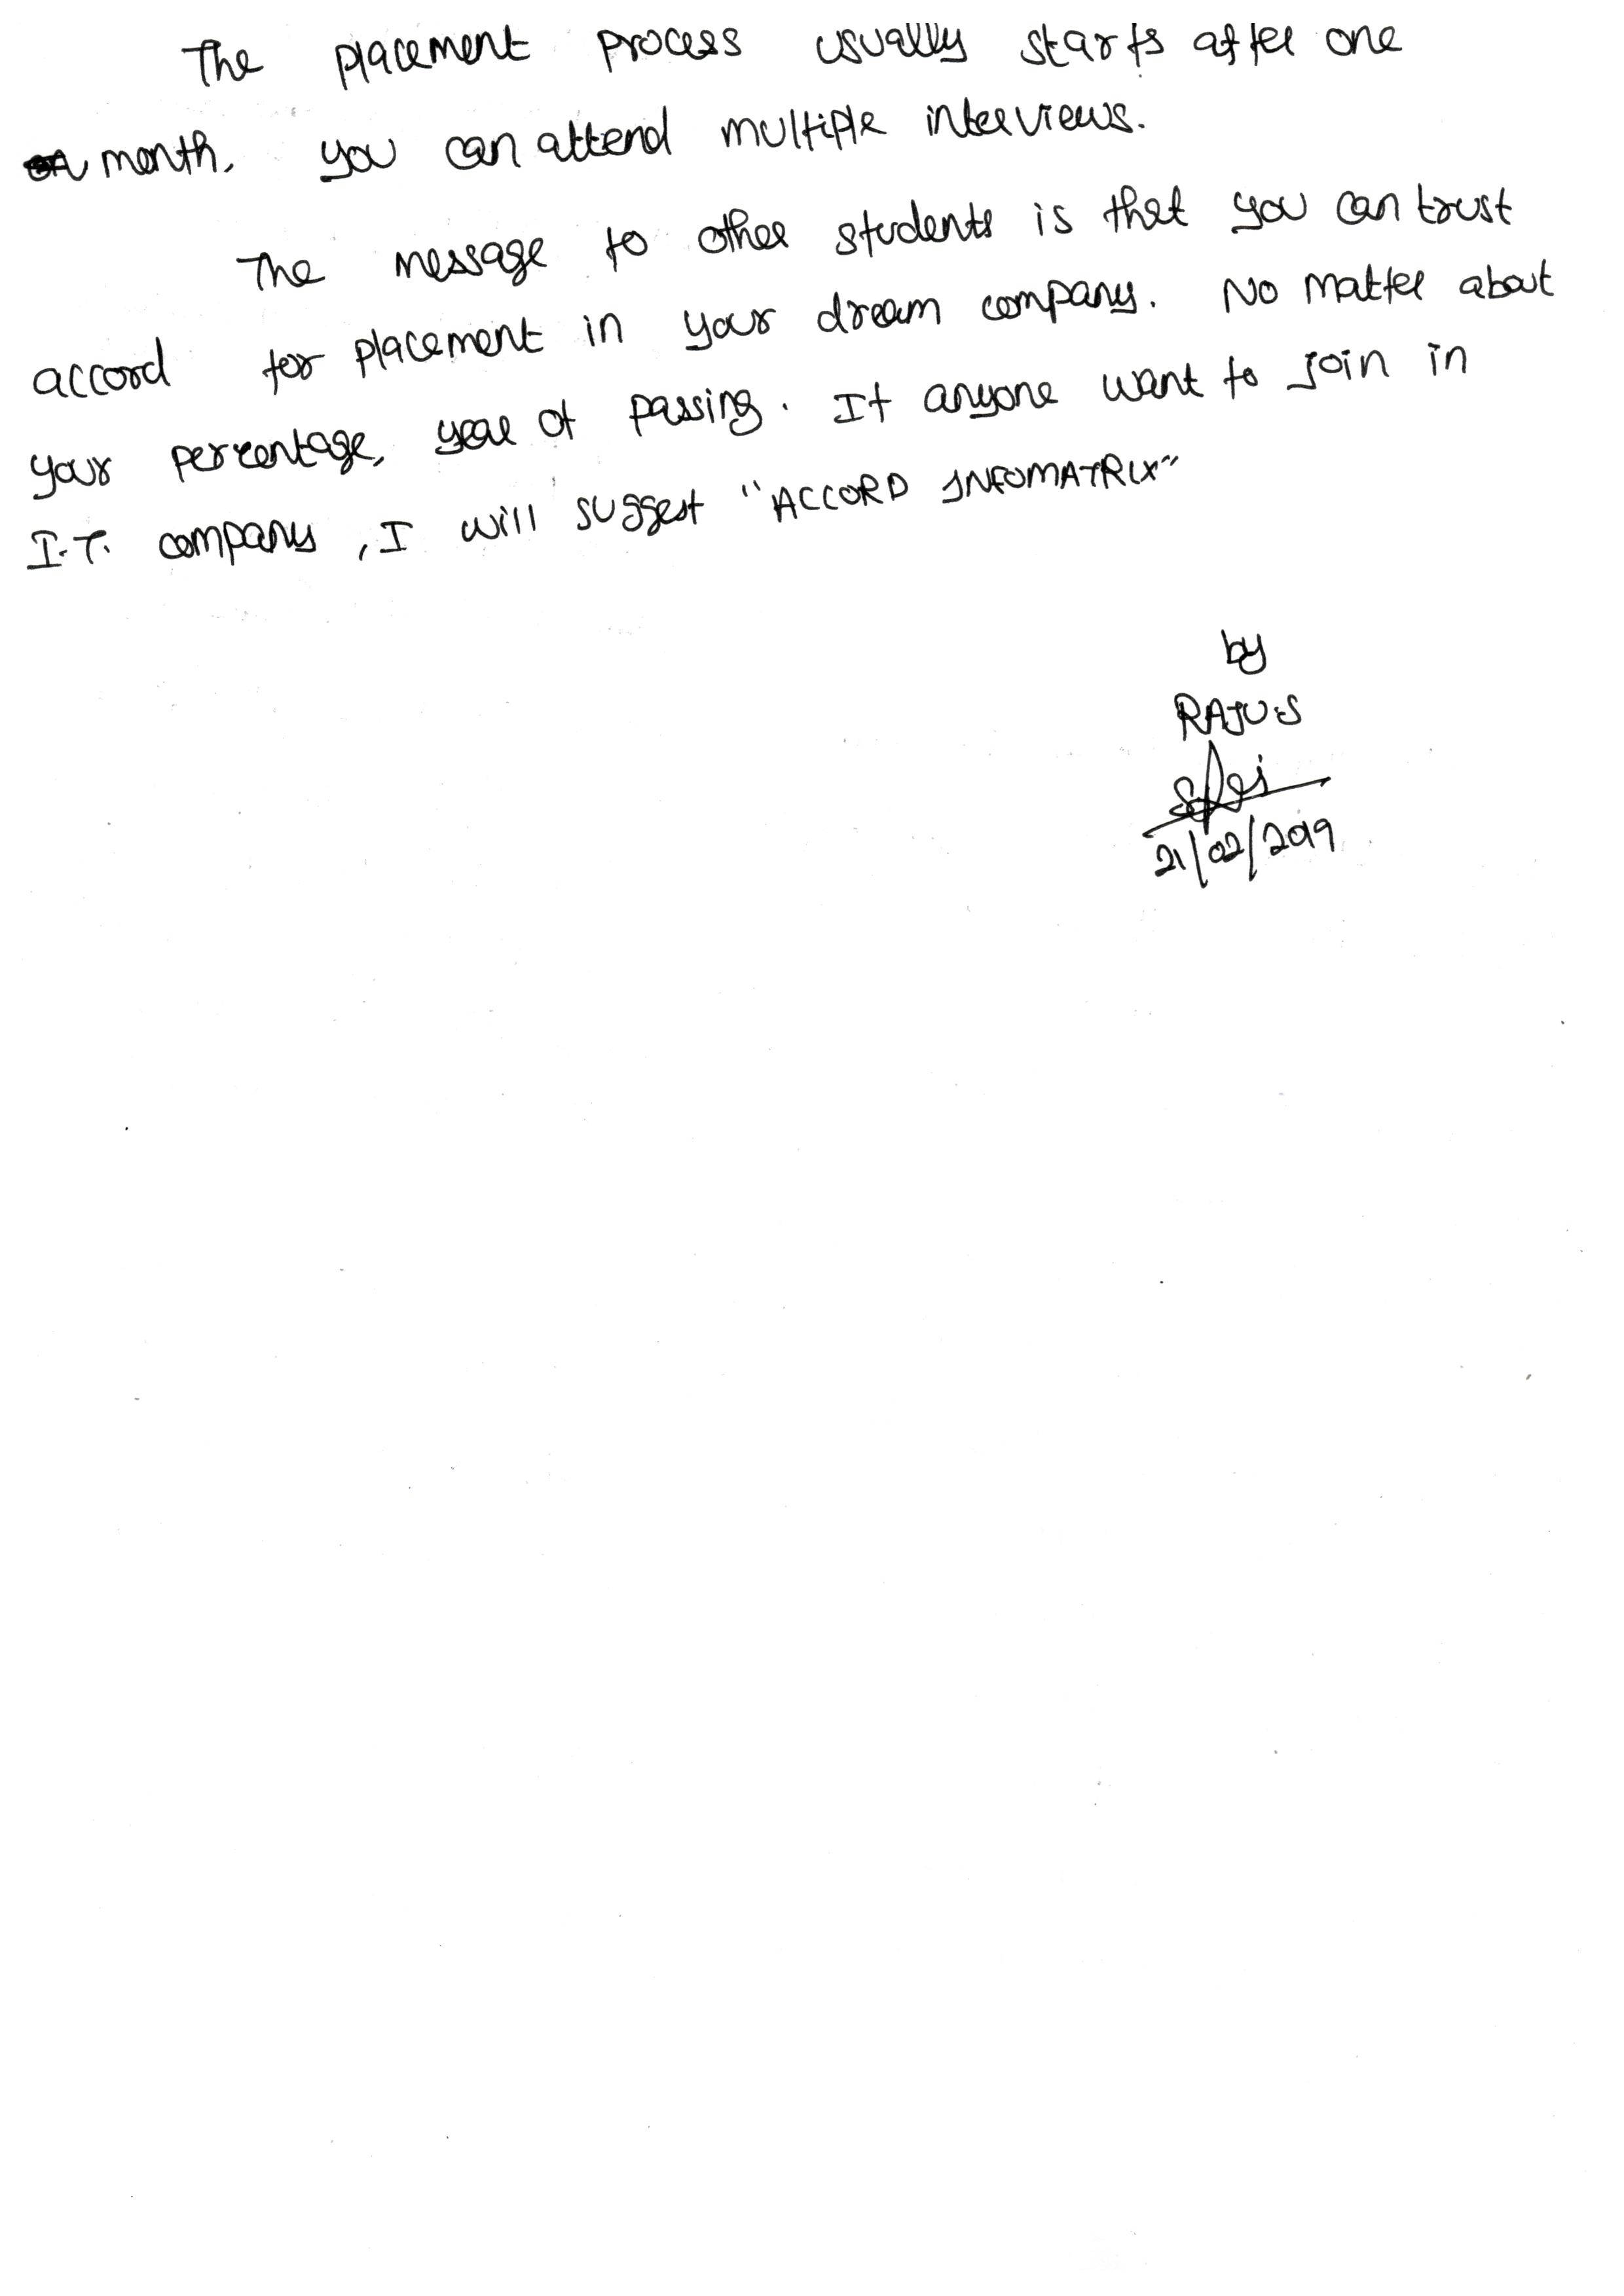 The placement process usually starts after one
month. you can attend multiple interviews.
The message to other students is that you can trust
accord for placement in your dream company. No matter about
your percentage, year of passing. If anyone want to join in
I.T. company, I will suggest "ACCORD INFOMATRIX"
by
RAJU.S
21/02/2019